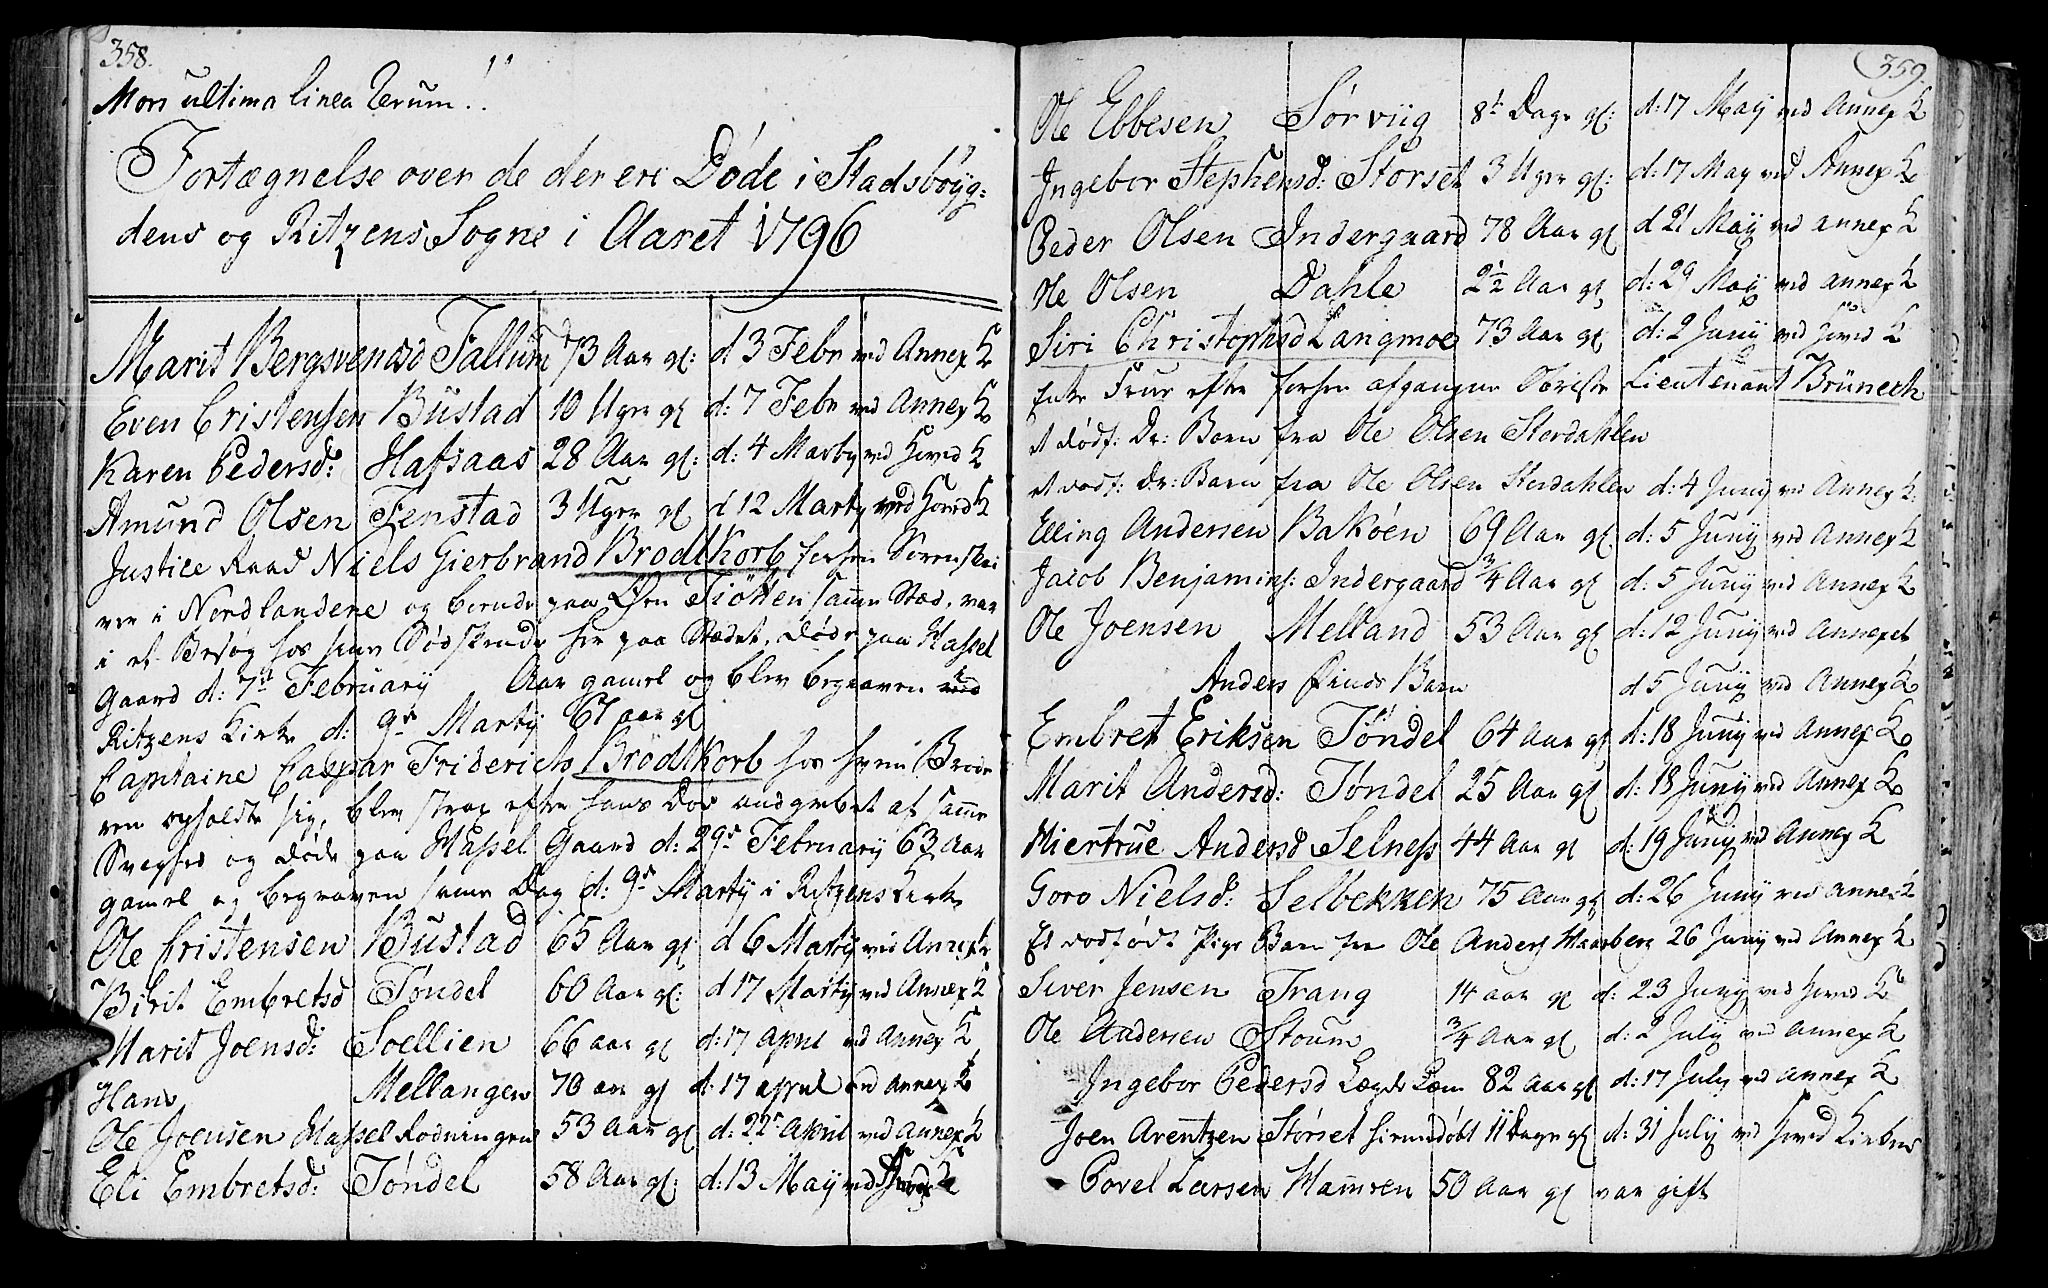 358.
Mors ultima linea rerum!!
Fortægnelse over de der ere Døde i Stadsbøyg:
dens og Ritzens Sogne i Aaret 1796
Marit Bergsvensd Fallum 73 Aar gl: d 3 Febr ved Annex K
Even Cristensen Bustad 10 Uger gl d: 7 Febr ved Annex K
Karen Pedersd: Hafsaas 28 Aar gl: d: 4 Marty ved Hoved K
Amund Olsen Fenstad 3 Uger gl d 12 Marty ved Hoved K
Justice Raad Niels Gierbrand Brodtkorb forhen Sorenskri
ver i Nordlandene og boende paa Øen Tiötten samme Stæd, var
i et Besøg hos sine Södskende her paa Stædet, döde paa Hassel
Gaard d: 7de February Aar gamel og blev begraven ved
Ritzens Kirke d: 9de Marty 67 aar gl
Captaine Caspar Friderich Brodtkorb hos hvem Brode
ren opholdt sig, blev strax efter hans Død andgrebet af samme
Svaghed og döde paa Hassel Gaard d: 29de February 63 Aar
gamel og begraven samme Dag d: 9de Marty i Ritzens Kirke
Ole Cristensen Bustad 65 Aar gl: d 6 Marty ved Annex K
Birit Embretsd Tøndel 60 Aar gl: d 17 Marty ved Annex K
Marit Joensd: Soellien 66 aar gl d: 17 April ved Annex K
Hans Mellangen 70 aar gl d: 17 april ved annex K
Ole Joensen Hassel Rødningen 53 Aar gl d: 22de April ved Annex K
Eli Embretsd: Tøndel 58 Aar gl: d: 13 May ved
359.
Ole Ebbesen Sørviig 8t Dage gl: d: 17 May ved Annex K
Ingebor Stephensd: Størset 3 Uger gl: d: 17 May ved Annex K
Peder Olsen Indergaard 78 Aar gl d 21 May ved annex K
Ole Olsen Dahle 2½ Aar gl d: 29 May ved annex K
Siri Christophsd Langmoe 73 Aar gl d: 2 Juny ved Hoved K
Enke Frue efter forhen afgangne Obriste Lieutenant Brünech
et dødf: Dr: Barn fra Ole Olsen Stordahlen
et dødf: Dr: Barn fra Ole Olsen Stordahlen d: 4 Juny ved Annex K:
Elling Andersen Bakøen 69 Aar gl d: 5 Juny ved Annex K
Jacob Benjamins: Indergaard ¾ Aar gl d: 5 Juny ved Annex K
Ole Joensen Melland 53 Aar gl d: 12 Juny ved Annexet
Anders Finds Barn d 5 Juny ved Annex K
Embret Eriksen Tøndel 64 Aar gl d: 18 Juny ved Annex K
Marit Andersd: Tøndel 25 Aar gl d: 18 Juny ved Annex K
Hiertrue Andersd Selness 44 Aar gl d: 19 Juny ved Annex K
Goro Nielsd: Selbekken 75 Aar gl d: 26 Juny ved annex K
Et dødfødt Pige Barn fra Ole Anders Haarberg 26 Juny ved Annex K
Siver Jensen Trang 14 aar gl d: 23 Juny ved Hoved K
Ole Andersen Stoum ¾ Aar gl d: 2 July ved annex K
Ingebor Pedersd Lægds Lem 82 Aar gl d: 17 July ved annex K
Joen Arentzen Størset hiemedøbt 11 Dage gl d: 31 July ved Hoved Kirken
Povel Larsen Hamsen 50 Aar gl var gift